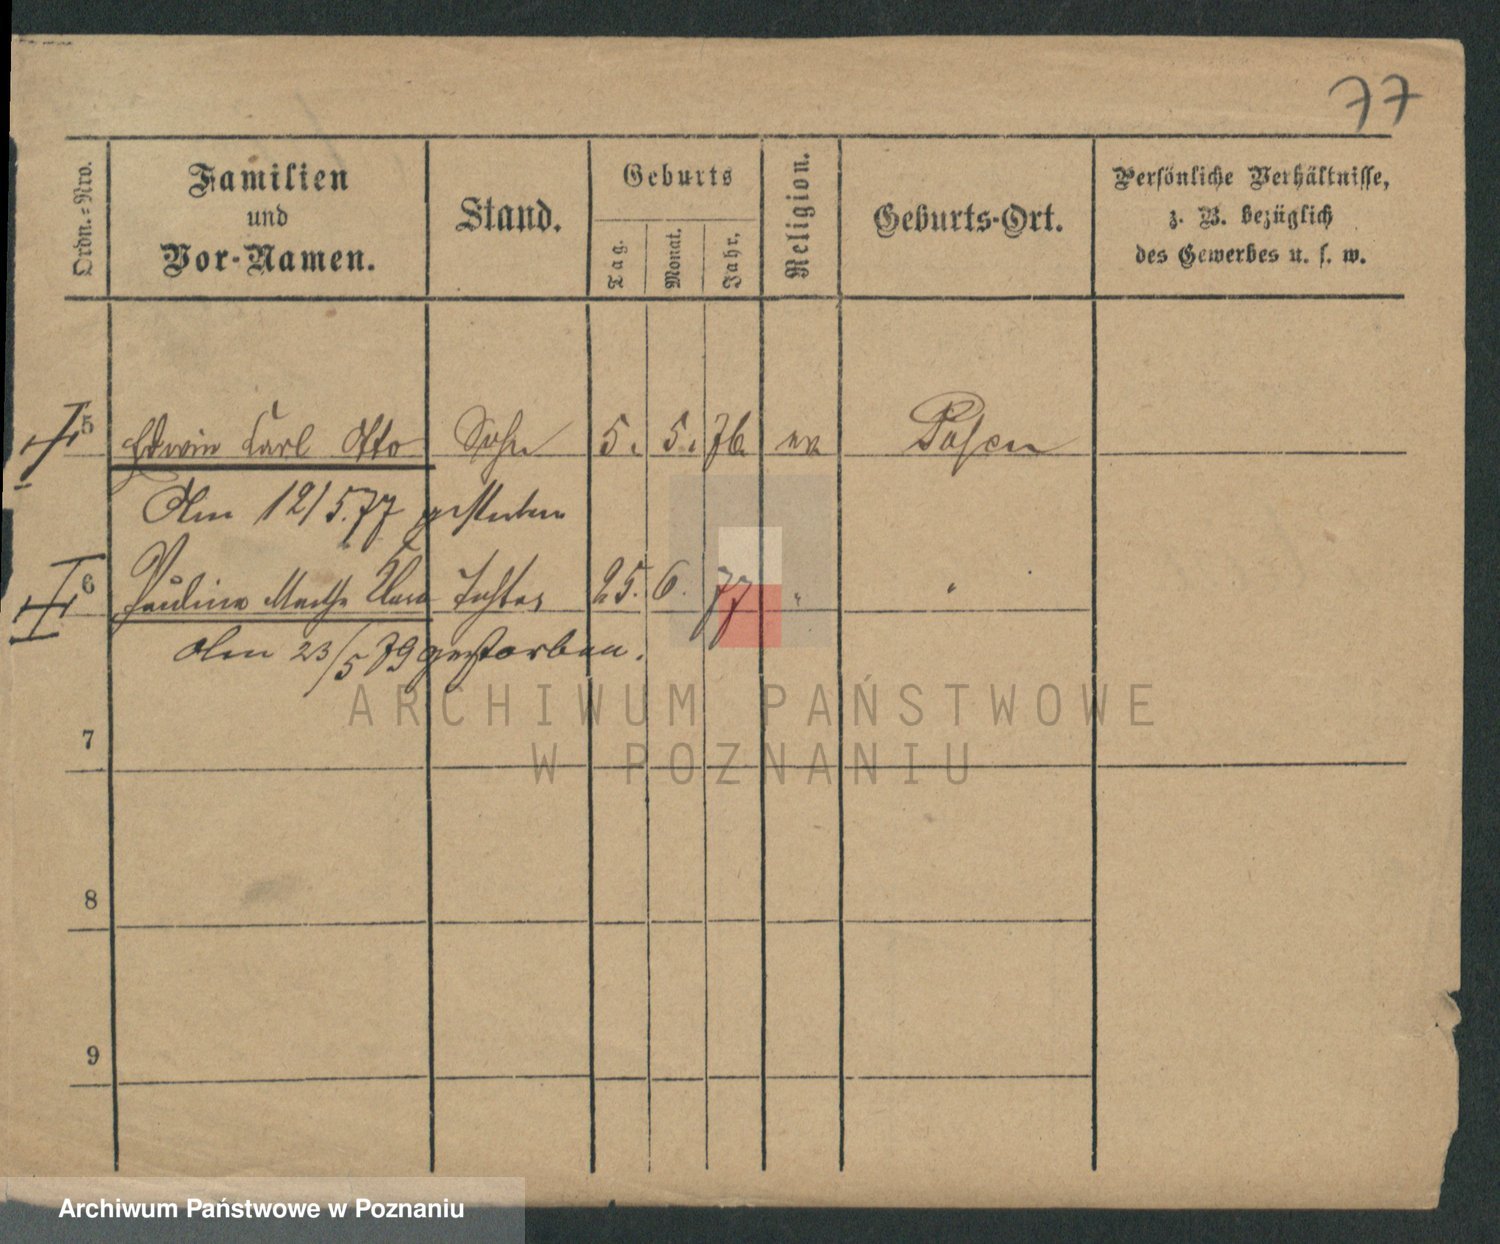 77
Ordn.=Nro.
Familien
und
Vor-Namen.
Stand.
Geburts
Tag.
Monat.
Jahr.
Religion.
Geburts-Ort.
Persönliche Verhältnisse,
z. B. bezüglich
des Gewerbes u. s. w.
5 Edwin Carl Otto Sohn 5. 5. 76. ev. Posen
Am 12/5.77 gestorben
6 Pauline Martha Clara Tochter 25. 6. 77 " "
Am 23/5 79 gestorben.
7
8
9
ARCHIWUM PAŃSTWOWE
W POZNANIU
Archiwum Państwowe w Poznaniu